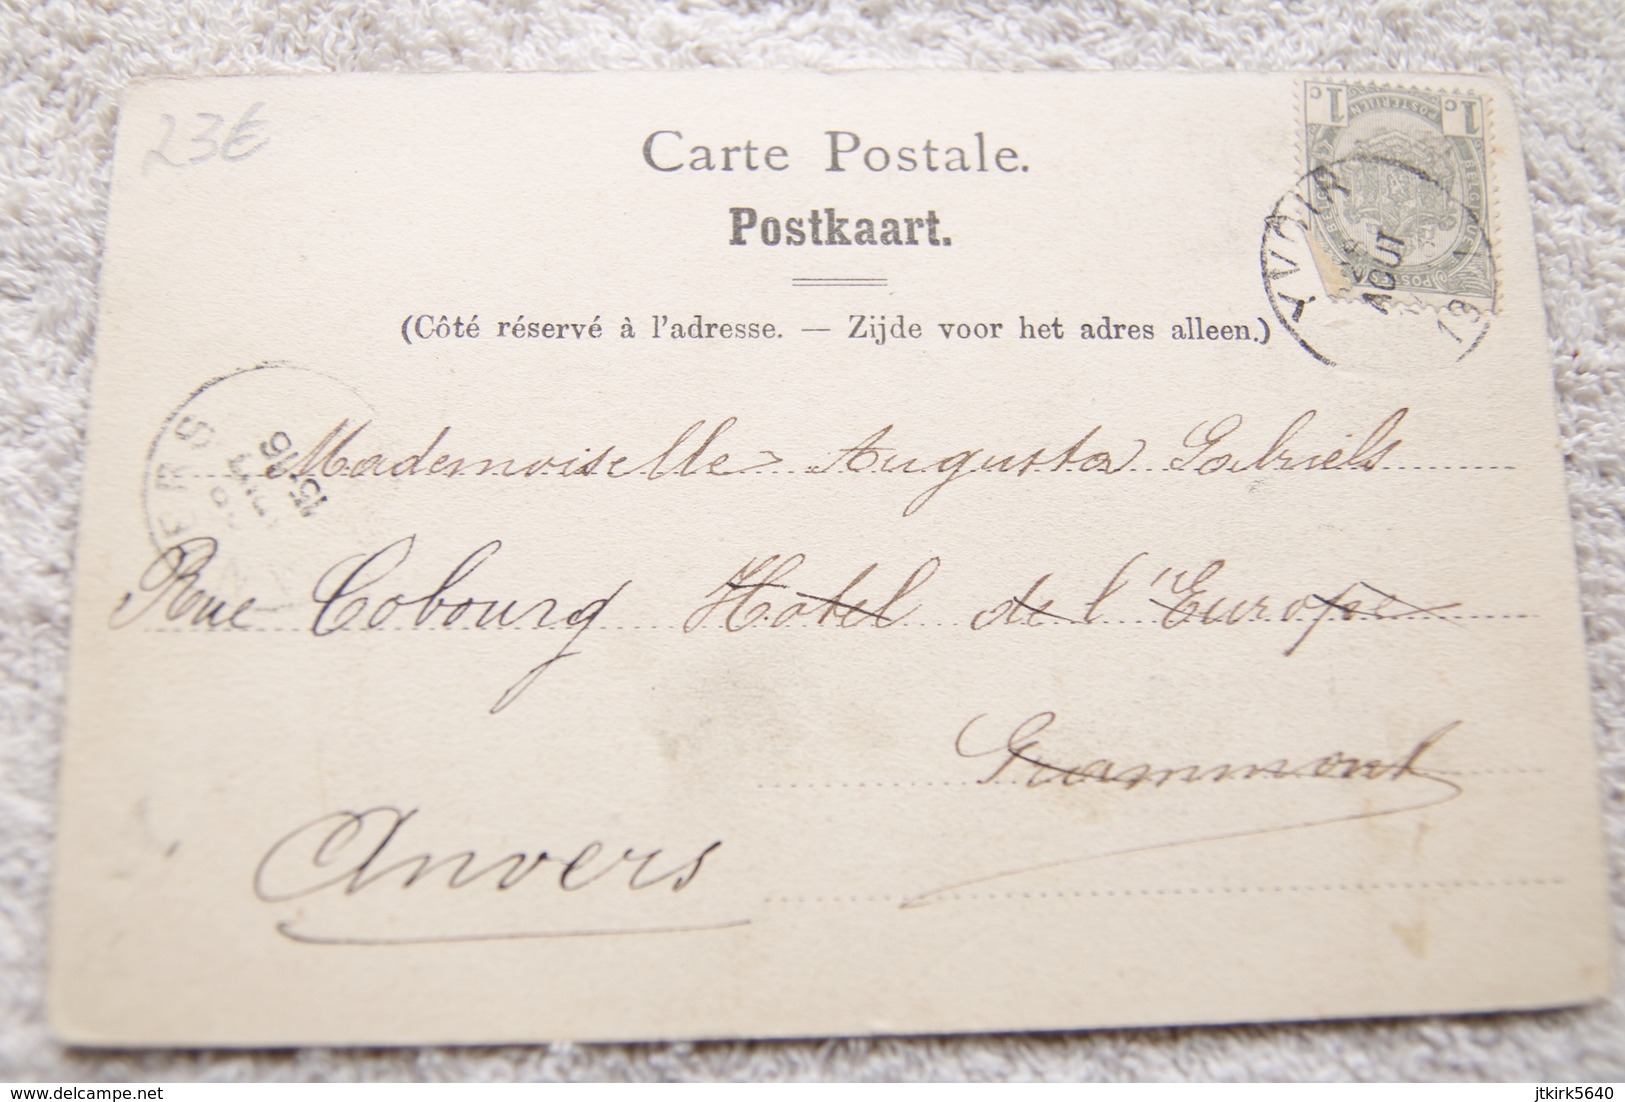 23€
Carte Postale.
Postkaart.
1c 1c
POSTERIJEN
BELGIQUE
YVOIR
AOUT
13
(Côté réservé à l'adresse. — Zijde voor het adres alleen.)
ERS
15-16
Mademoiselle Augusta Gabriels
Rue Cobourg Hotel de l'Europe
Grammont
Anvers
www.delcampe.net
jtkirk5640